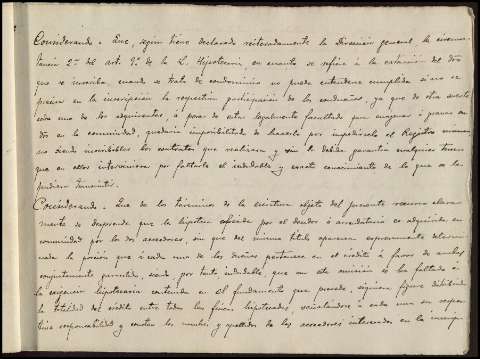 Considerando. Que, según tiene declarado reiteradamente la Dirección general la circuns-
tancia 2ª del art. 9º de la L. Hipotecaria, en cuanto se refiere á la extensión del dro
que se inscriba, cuando se trata de condominio no puede entenderse cumplida si no se
precisa en la inscripción la respectiva participación de los condueños, ya que de otra suerte
cada uno de los adquirentes, á pesar de estar legalmente facultado para enagenar ó gravar su
dro en la comunidad, quedaría imposibilitado de hacerlo por impedírselo el Registro
no siendo inscribibles los contratos que realizara y sin la debida garantía cualquier tercero
que en ellos interviniera por faltarle el indudable y exacto conocimiento de lo que se le
pudiera transmitir.
Considerando. Que de los términos de la escritura objeto del presente recurso clara-
mente se desprende que la hipoteca por el deudor ó arrendatario es adquirida en
comunidad por los dos acreedores, sin que del mismo título aparezca expresamente determi-
nada la porción que á cada uno de los dueños pertenece en el crédito á favor de ambos
conjuntamente garantido, siendo por tanto indudable que en esta omisión se ha faltado á
la exigencia hipotecaria contenida en el fundamento que precede, siquiera figure distribuida
la totalidad del crédito entre todas las fincas hipotecadas, señalándose á cada una su respec-
tiva responsabilidad y consten los nombres y apellidos de los acreedores interesados en la inscrip-